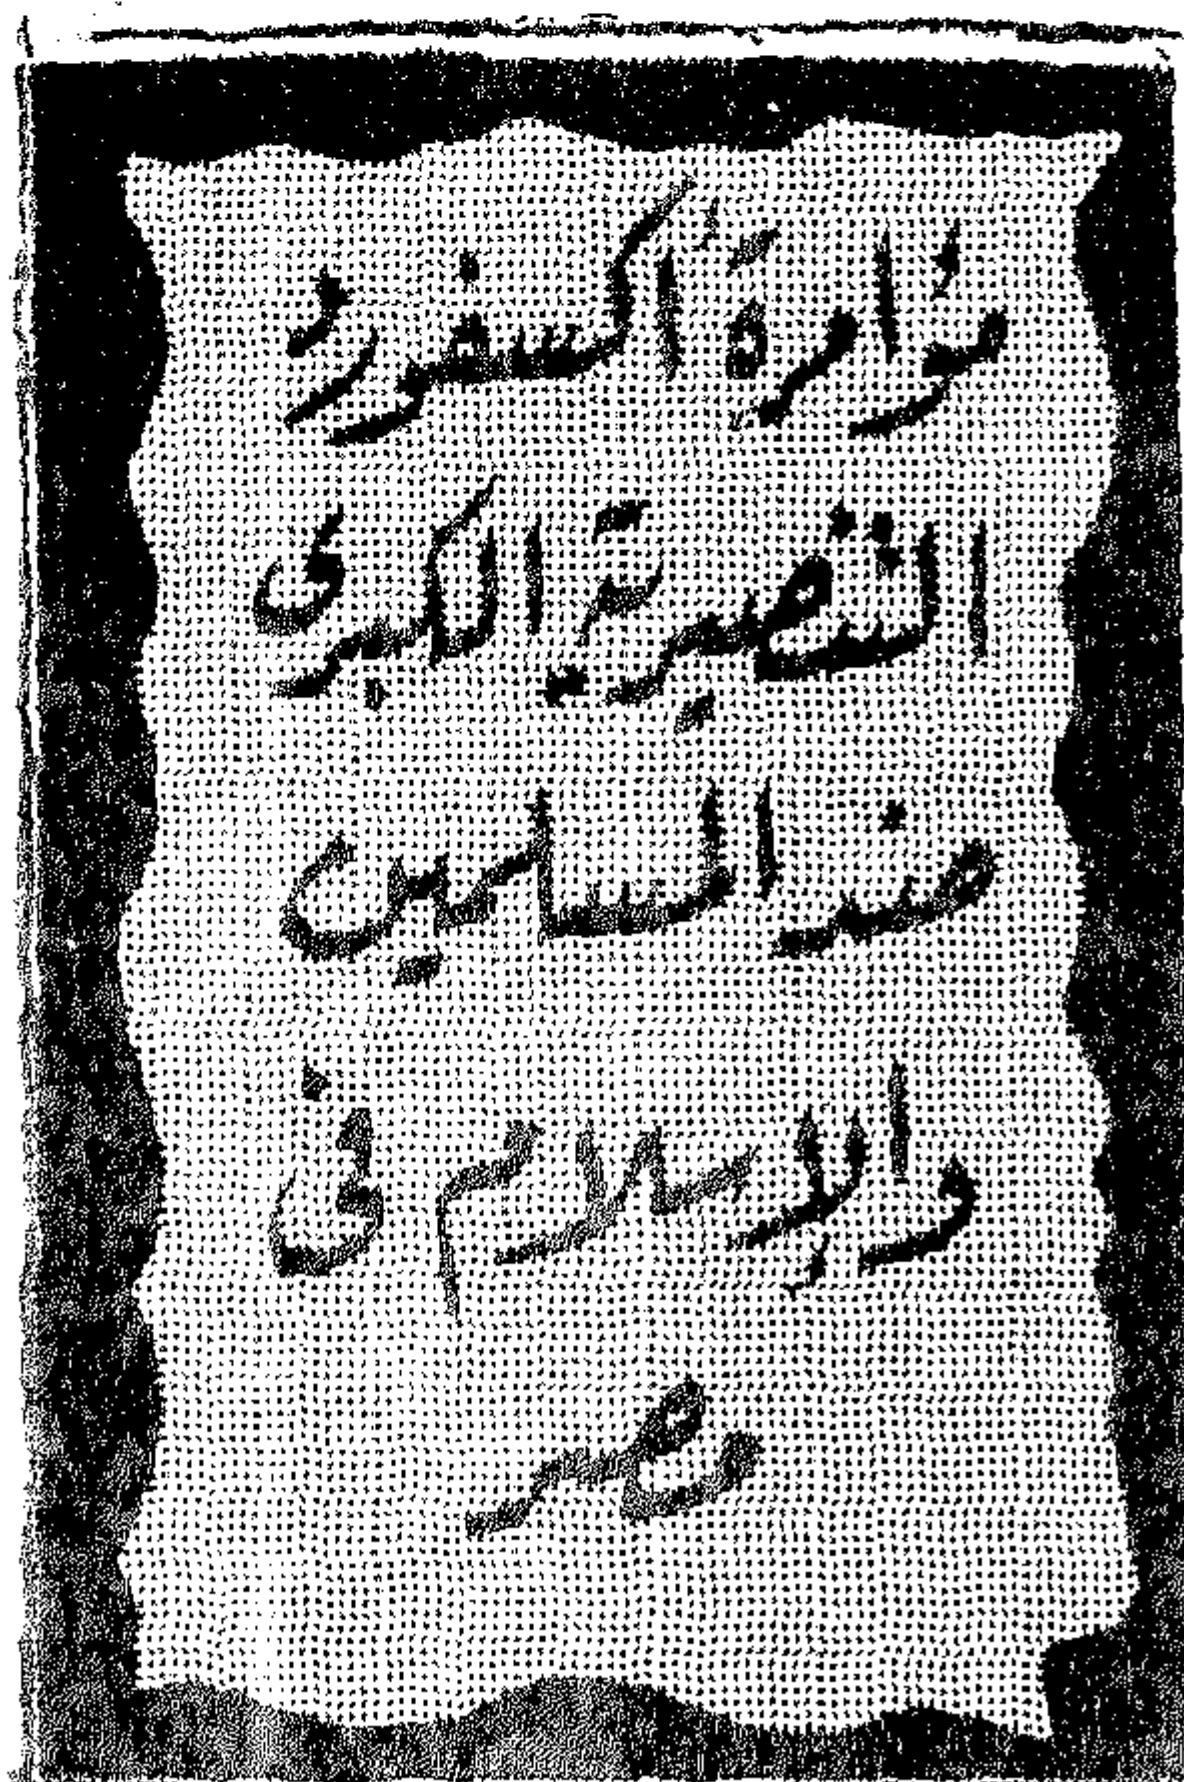 مؤامرة أكسفورد
التنصيرية الكبرى
ضد المسلمين
والإسلام في
مصر